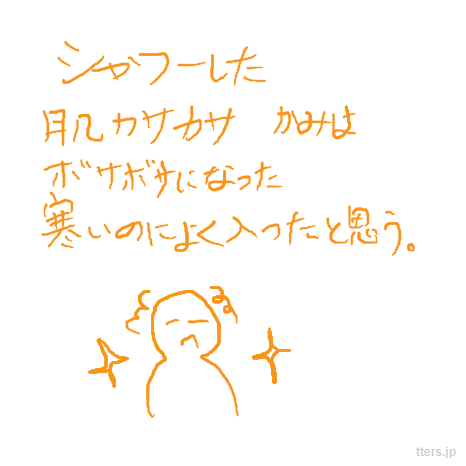 シャフーした
肌カサカサ かみは
ボサボサになった
寒いのによく入ったと思う。
tters.jp